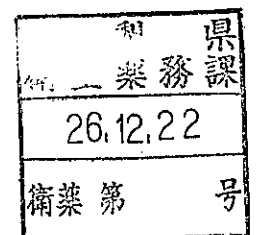 和 県
二 薬務課
26.12.22
衛薬第 号